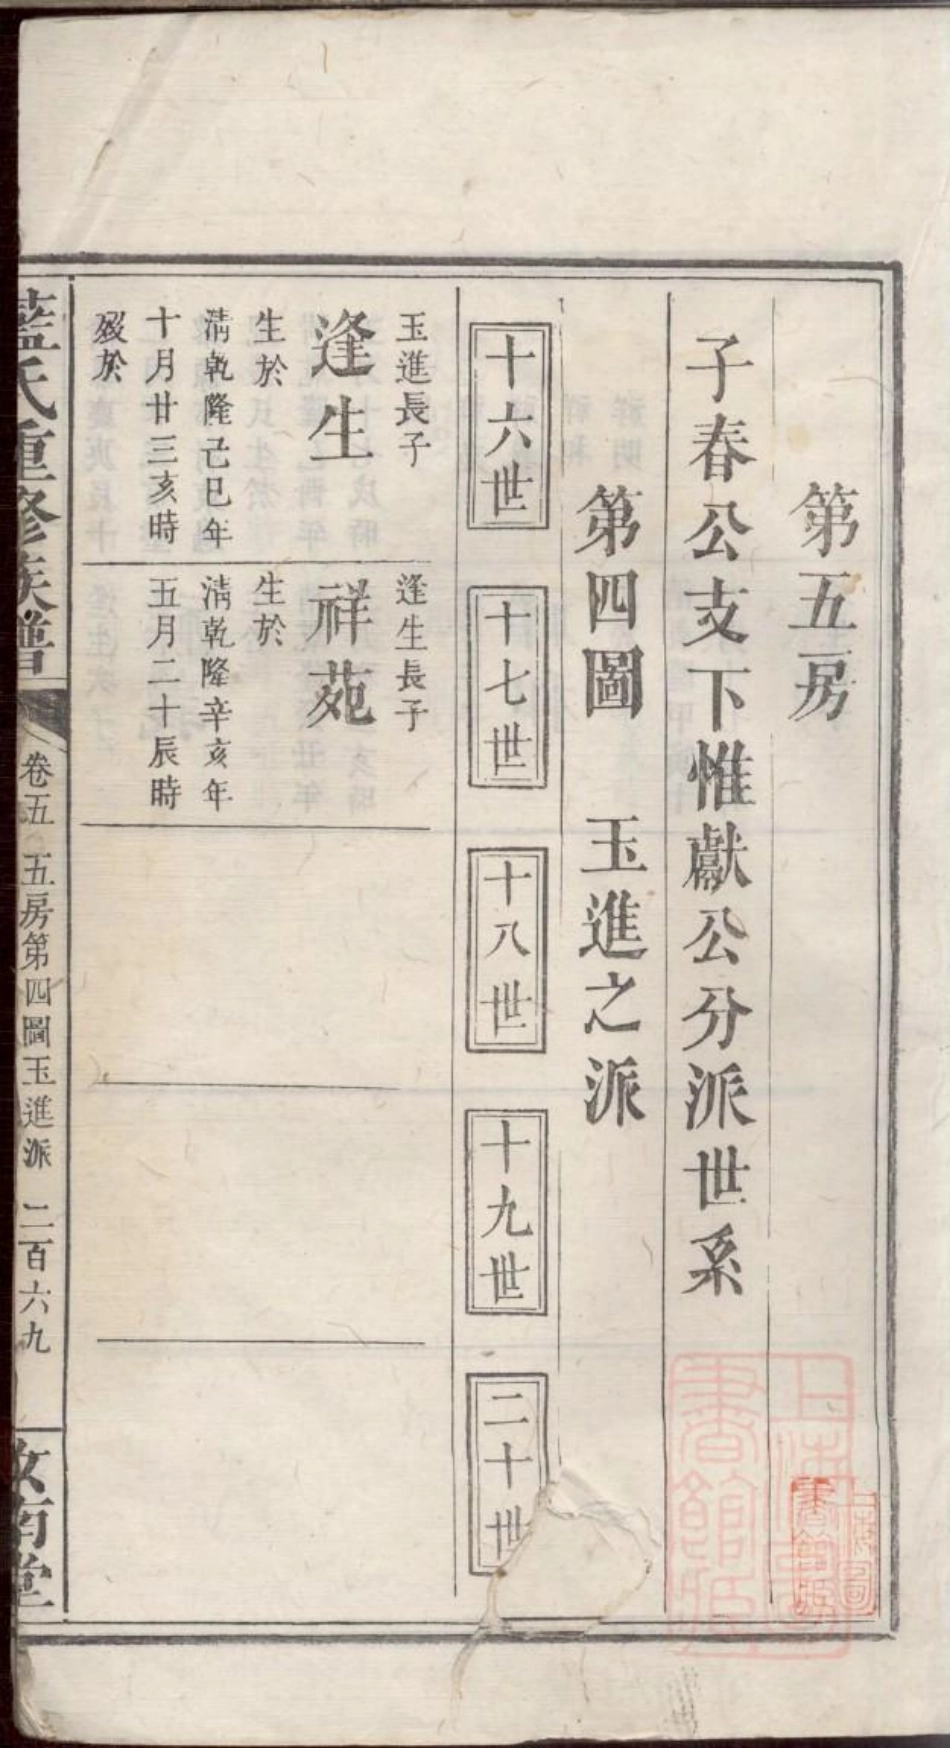 第五房
子春公支下惟獻公分派世系
第四圖 玉進之派
十六世
十七世
十八世
十九世
二十世
玉進長子
逢生
生於
清乾隆己巳年
十月廿三亥時
歿於
逢生長子
祥苑
生於
清乾隆辛亥年
五月二十辰時
藍氏重修族譜
卷五 五房第四圖玉進派 二百六九
汝南堂
上海圖書館藏